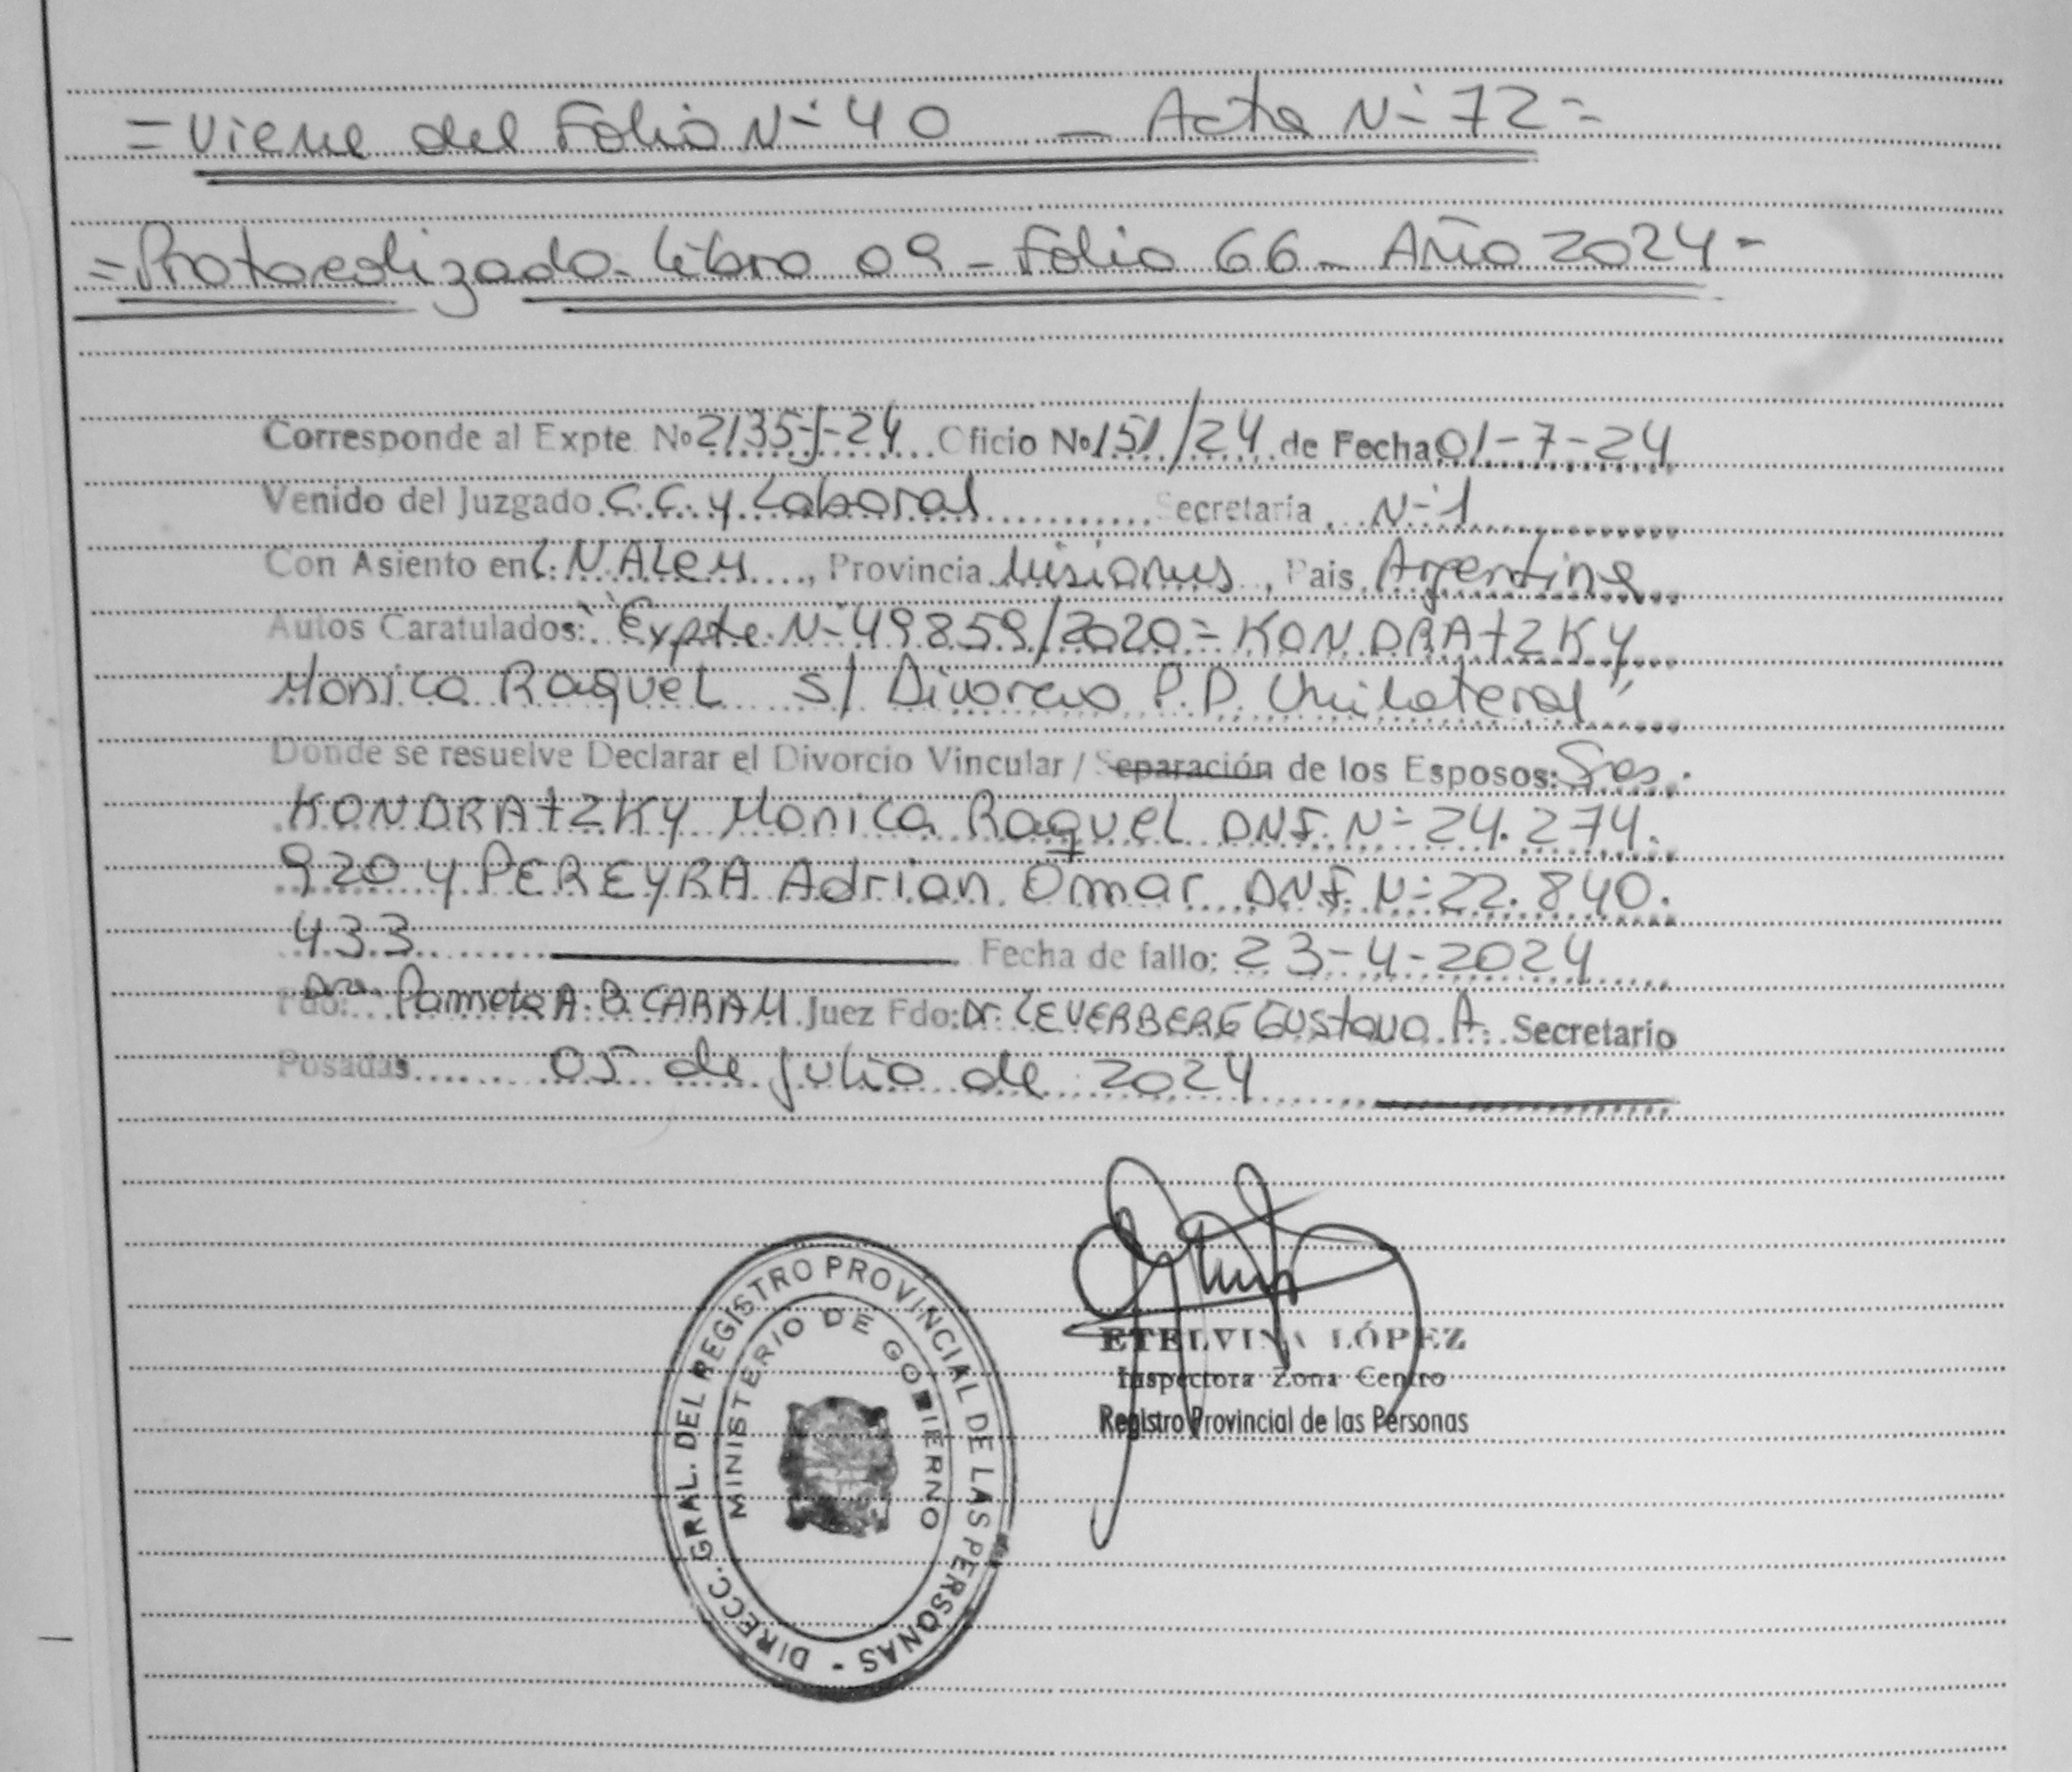 = Viene del Folio N- 40 - Acta N- 72 =
= Protocolizado - Libro 09 - Folio 66 - Año 2024 -
Corresponde al Expte. Nº 2135-J-24 Oficio Nº 151/24 de Fecha 01-7-24
Venido del Juzgado C.C. y Laboral Secretaría N-1
Con Asiento en L.N.Alem, Provincia Misiones, Pais Argentina
Autos Caratulados: "Expte. N- 49859/2020 = KONDRATZKY
Monica Raquel s/ Divorcio P.P. Unilateral"
Donde se resuelve Declarar el Divorcio Vincular / Separación de los Esposos: Sres.
KONDRATZKY Monica Raquel DNI. N- 24.274.
920 y PEREYRA Adrian Omar DNI. N- 22.840.
433 Fecha de fallo: 23-4-2024
Fdo: Dra. Pamela A. B. CARAM Juez Fdo: Dr. LEVERBERG Gustavo A. Secretario
Posadas 05 de julio de 2024
DIRECC. GRAL. DEL REGISTRO PROVINCIAL DE LAS PERSONAS -
MINISTERIO DE GOBIERNO
ETELVINA LÓPEZ
Inspectora Zona Centro
Registro Provincial de las Personas